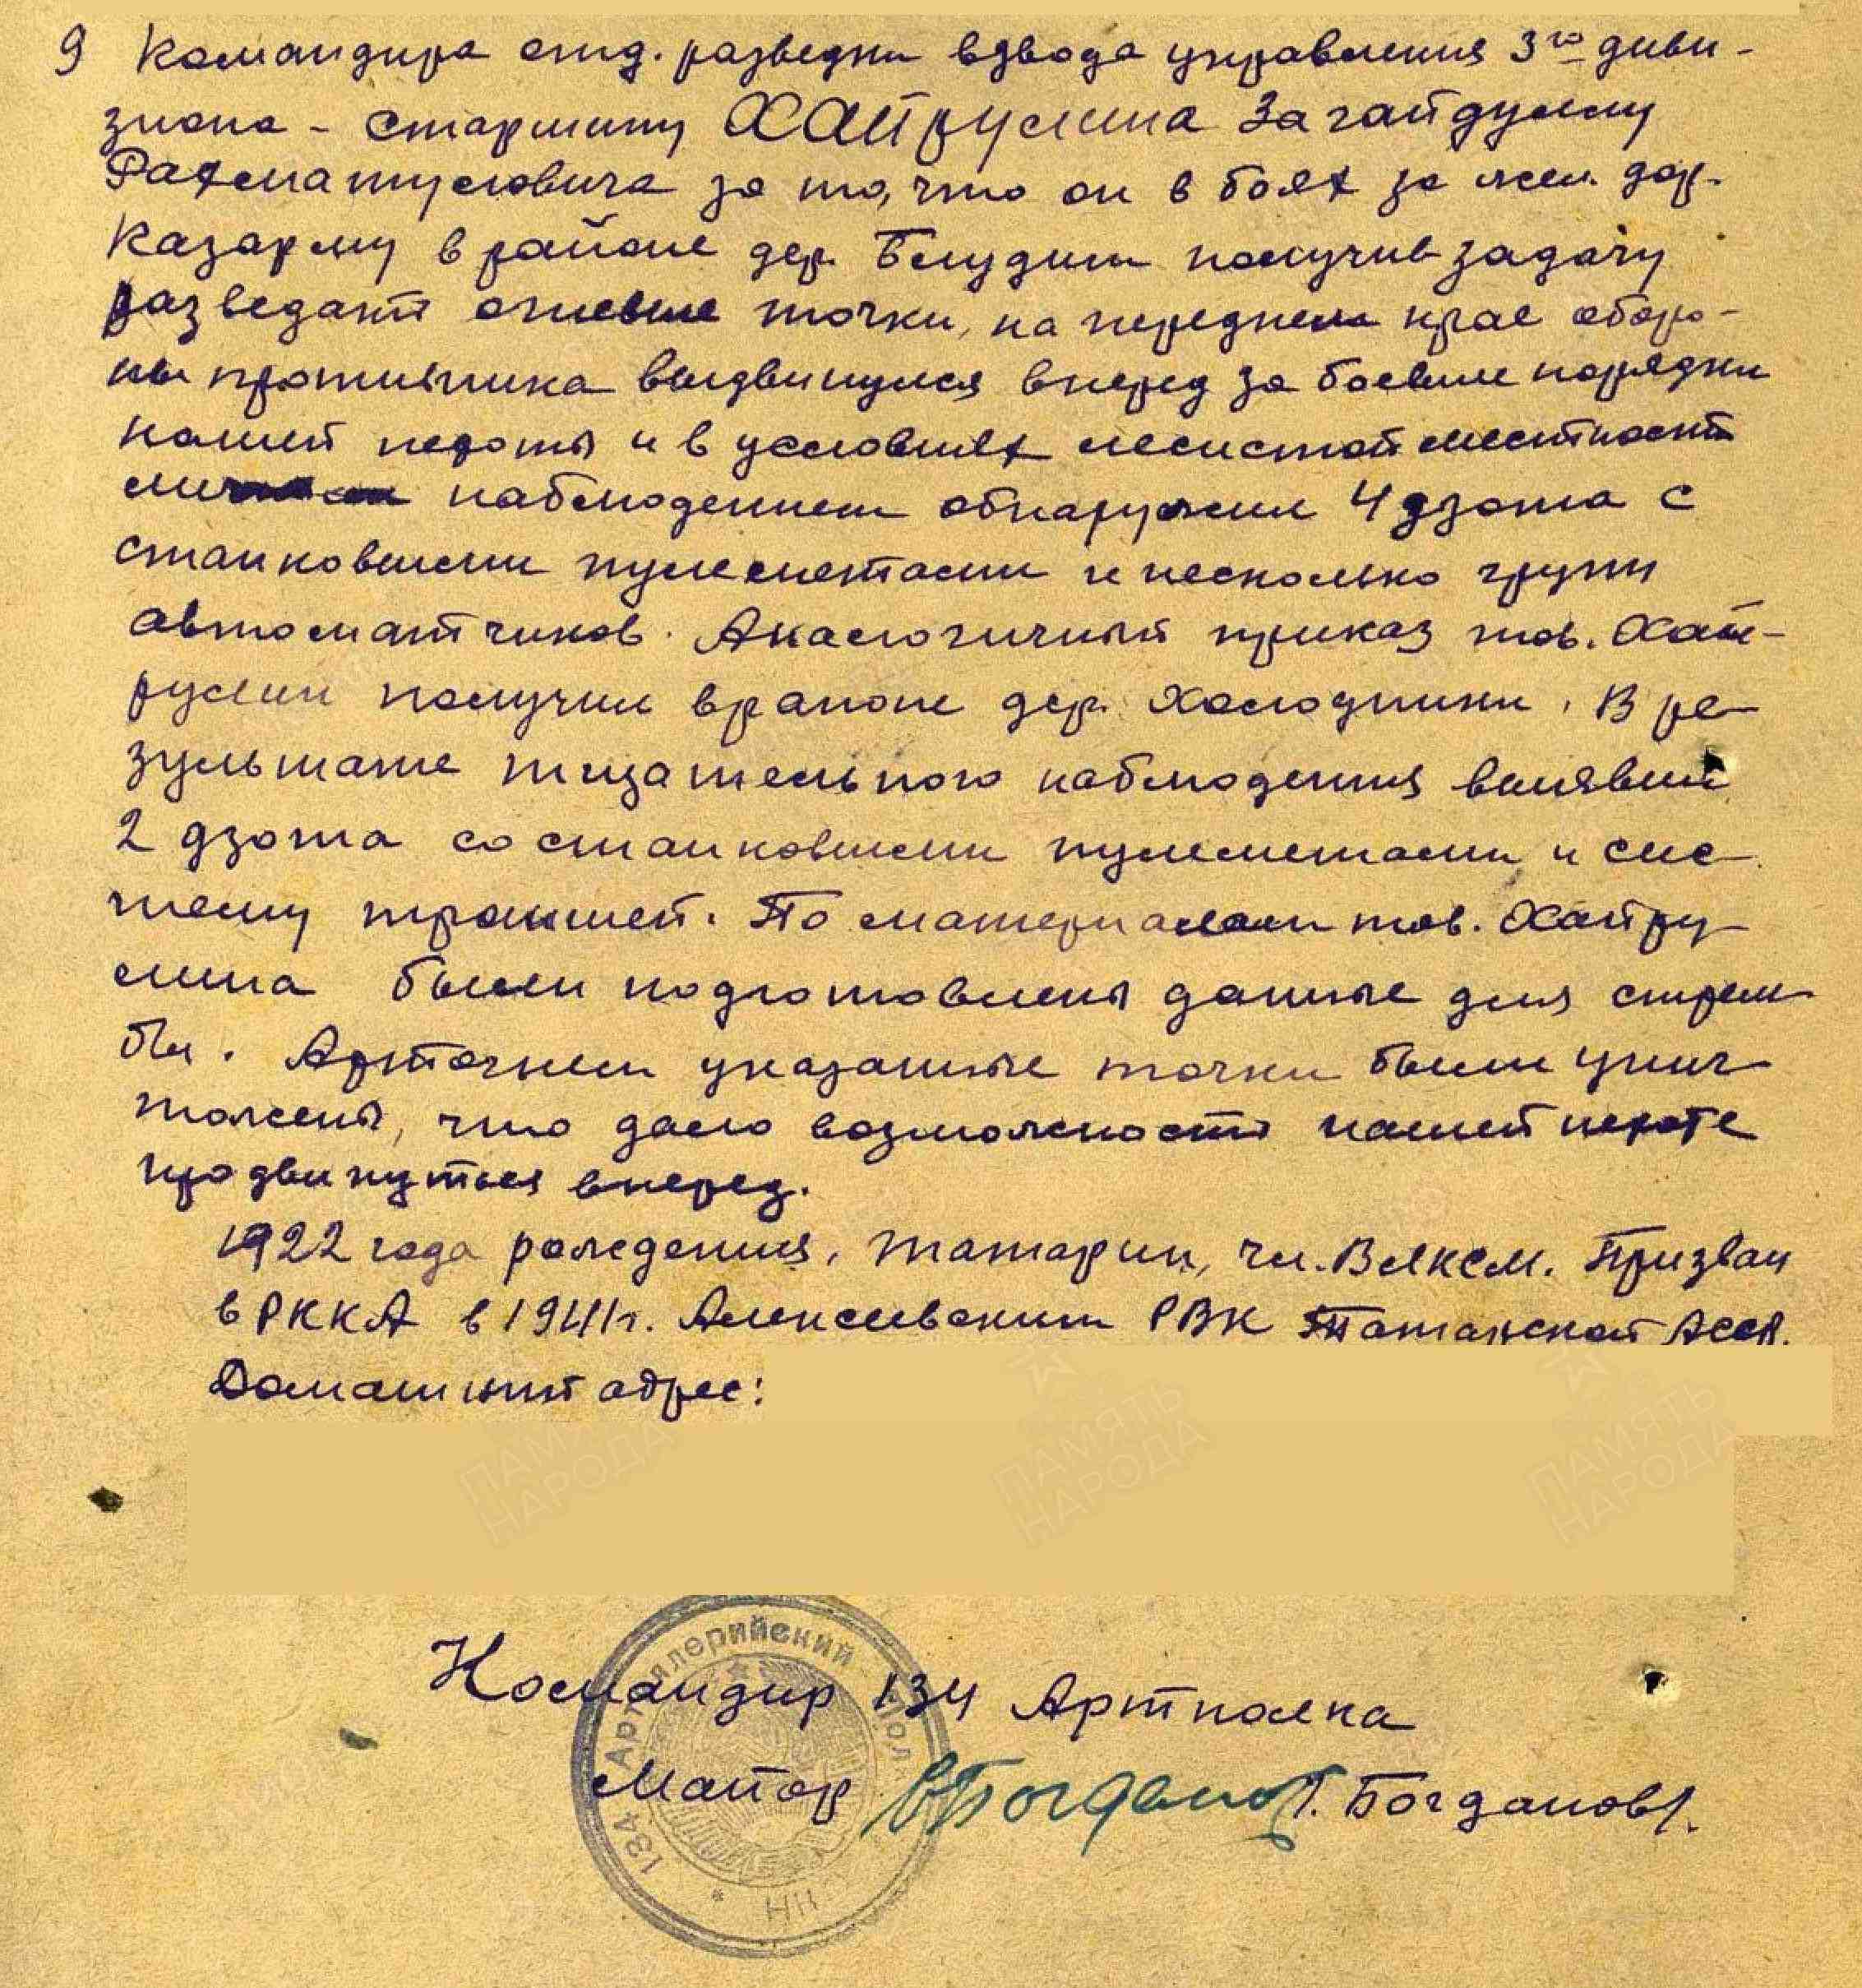 9 Командира отд. разведки взвода управления 3го диви-
зиона - старшину ХАЙрулина Загайдуллу
Рахматуловича за то, что он в боях за жел. дор.
казарму в районе дер. Блудим получив задачу
разведать огневые точки, на переднем крае оборо-
ны противника выдвинулся вперед за боевые порядки
нашей пехоты и в условиях лесистой местност
наблюдением обнаружил 4 дзота с
станковыми пулеметами и несколько групп
автоматчиков. Аналогичный приказ тов. Хай-
рулин получил в районе дер. Холодники. В ре-
зультате тщательного наблюдения выявил
2 дзота со станковыми пулеметами и сис-
тему траншей. По материалам тов. Хайру-
лина были подготовлены данные для стрель
бы. Артогнем указанные точки были унич-
тожены, что дало возможность нашей пехоте
продвинуться вперед.
1922 года рождения, татарин, чл. ВЛКСМ. Призван
в РККА в 1941г. Алексеевским РВК Татарской АССР.
Домашний адрес:
ПАМЯТЬ НАРОДА
ПАМЯТЬ НАРОДА
ПАМЯТЬ НАРОДА
Командир 134 Артполка
Майор ВБогданов /. Богданов/.
134 Артиллерийский Полк * НКО